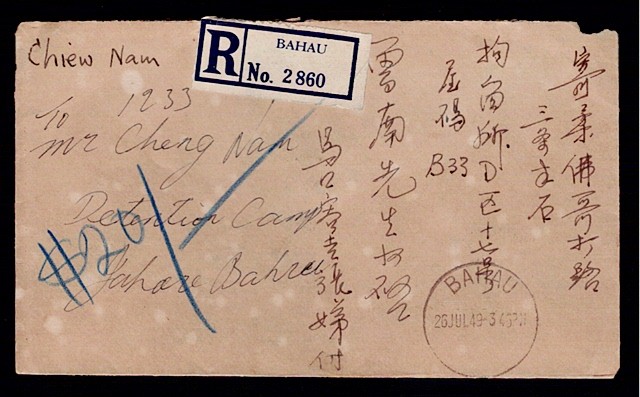 Chiew Nam
R
BAHAU
No. 2860
1233
To
Mr Cheng Nam
Detention Camp
Johore Bahru
寄柔佛哥打路
三
石
拘留所D区十七號
B33
南先生
馬口
張娣付
BAHAU
26JUL49-3